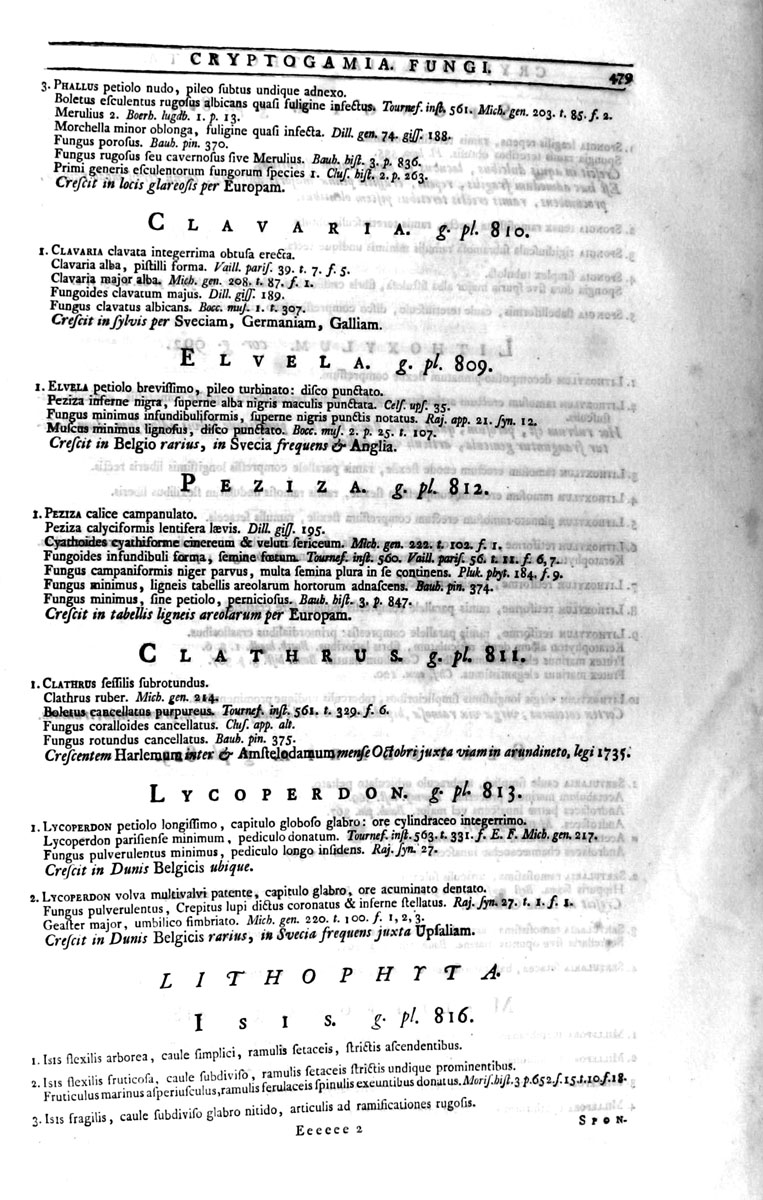 CRYPTOGAMIA. FUNGI. 479
3. PHALLUS petiolo nudo, pileo ſubtus undique adnexo.
Boletus eſculentus rugoſus albicans quaſi fuligine infectus. Tournef. inſt. 561. Mich. gen. 203. t. 85. f. 2.
Merulius 2. Boerh. lugdb. 1. p. 13.
Morchella minor oblonga, fuligine quaſi infecta. Dill. gen. 74. giſſ. 188.
Fungus poroſus. Bauh. pin. 370.
Fungus rugoſus ſeu cavernoſus ſive Merulius. Bauh. hiſt. 3. p. 836.
Primi generis eſculentorum fungorum ſpecies 1. Cluſ. hiſt. 2. p. 263.
Creſcit in locis glareoſis per Europam.
CLAVARIA. g. pl. 810.
1. CLAVARIA clavata integerrima obtuſa erecta.
Clavaria alba, piſtilli forma. Vaill. pariſ. 39. t. 7. f. 5.
Clavaria major alba. Mich. gen. 208. t. 87. f. 1.
Fungoides clavatum majus. Dill. giſſ. 189.
Fungus clavatus albicans. Bocc. muſ. 1. t. 307.
Creſcit in ſylvis per Sveciam, Germaniam, Galliam.
ELVELA. g. pl. 809.
1. ELVELA petiolo breviſſimo, pileo turbinato: diſco punctato.
Peziza inferne nigra, ſuperne alba nigris maculis punctata. Celſ. upſ. 35.
Fungus minimus infundibuliformis, ſuperne nigris punctis notatus. Raj. app. 21. ſyn. 12.
Muſcus minimus lignoſus, diſco punctato. Bocc. muſ. 2. p. 25. t. 107.
Creſcit in Belgio rarius, in Svecia frequens & Anglia.
PEZIZA. g. pl. 812.
1. PEZIZA calice campanulato.
Peziza calyciformis lentifera lævis. Dill. giſſ. 195.
Cyathoides cyathiforme cinereum & veluti ſericeum. Mich. gen. 222. t. 102. f. 1.
Fungoides infundibuli forma, ſemine fœtum. Tournef. inſt. 560. Vaill. pariſ. 56. t. 11. f. 6, 7.
Fungus campaniformis niger parvus, multa ſemina plura in ſe continens. Pluk. phyt. 184. f. 9.
Fungus minimus, ligneis tabellis areolarum hortorum adnaſcens. Bauh. pin. 374.
Fungus minimus, ſine petiolo, pernicioſus. Bauh. hiſt. 3. p. 847.
Creſcit in tabellis ligneis areolarum per Europam.
CLATHRUS. g. pl. 811.
1. CLATHRUS ſeſſilis ſubrotundus.
Clathrus ruber. Mich. gen. 214.
Boletus cancellatus purpureus. Tournef. inſt. 561. t. 329. f. 6.
Fungus coralloides cancellatus. Cluſ. app. alt.
Fungus rotundus cancellatus. Bauh. pin. 375.
Creſcentem Harlemum inter & Amſtelodamum menſe Octobri juxta viam in arundineto, legi 1735.
LYCOPERDON. g. pl. 813.
1. LYCOPERDON petiolo longiſſimo, capitulo globoſo glabro: ore cylindraceo integerrimo.
Lycoperdon pariſienſe minimum, pediculo donatum. Tournef. inſt. 563. t. 331. f. E. F. Mich. gen. 217.
Fungus pulverulentus minimus, pediculo longo inſidens. Raj. ſyn. 27.
Creſcit in Dunis Belgicis ubique.
2. LYCOPERDON volva multivalvi patente, capitulo glabro, ore acuminato dentato.
Fungus pulverulentus, Crepitus lupi dictus coronatus & inferne ſtellatus. Raj. ſyn. 27. t. 1. f. 1.
Geaſter major, umbilico fimbriato. Mich. gen. 220. t. 100. f. 1, 2, 3.
Creſcit in Dunis Belgicis rarius, in Svecia frequens juxta Upſaliam.
LITHOPHYTA.
ISIS. g. pl. 816.
1. ISIS flexilis arborea, caule ſimplici, ramulis ſetaceis, ſtrictis aſcendentibus.
2. ISIS flexilis fruticoſa, caule ſubdiviſo, ramulis ſetaceis ſtrictis undique prominentibus.
Fruticulus marinus aſperiuſculus, ramulis ferulaceis ſpinulis exeuntibus donatus. Moriſ. hiſt. 3 p. 652. ſ. 15. t. 10. f. 18.
3. ISIS fragilis, caule ſubdiviſo glabro nitido, articulis ad ramificationes rugoſis.
Eeeeee 2 SPON-